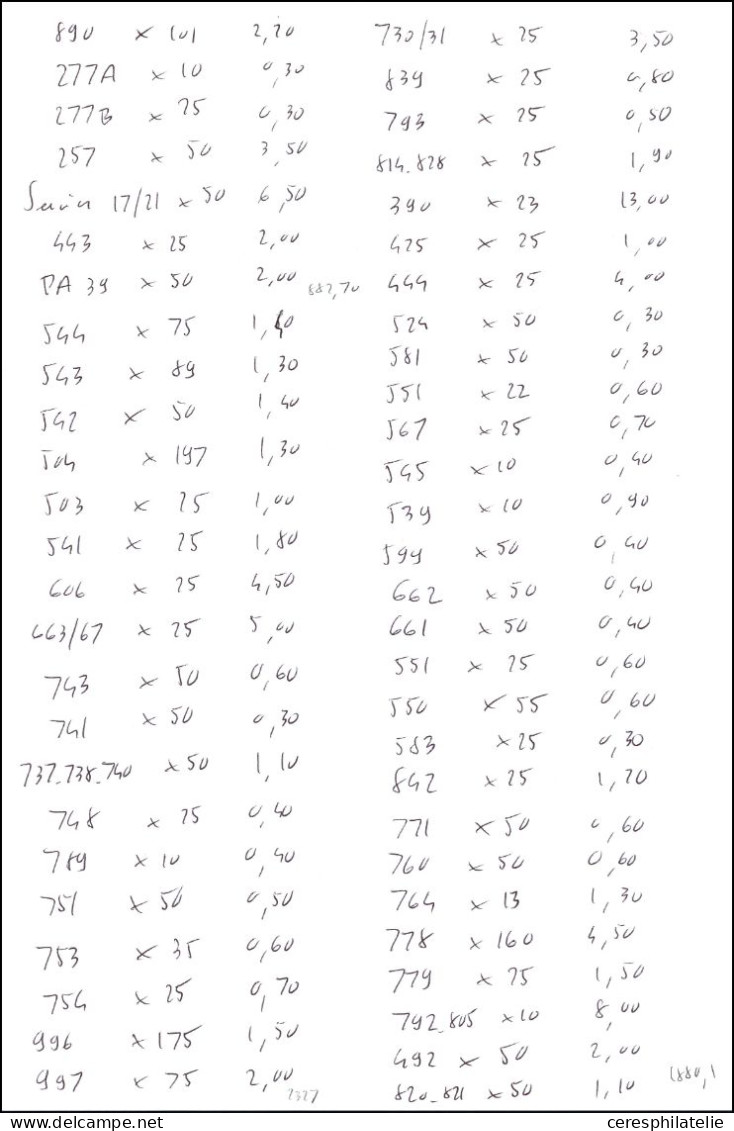 890 x 101 2,20
277A x 10 0,30
277B x 25 0,30
257 x 50 3,50
17/21 x 50 6,50
443 x 25 2,00
PA 39 x 50 2,00
544 x 75 1,40
543 x 89 1,30
542 x 50 1,40
504 x 197 1,30
503 x 25 1,00
541 x 25 1,80
606 x 25 4,50
663/67 x 25 5,00
743 x 50 0,60
741 x 50 0,30
737_738_740 x 50 1,10
748 x 25 0,40
789 x 10 0,40
751 x 50 0,50
753 x 35 0,60
754 x 25 0,70
996 x 175 1,50
997 x 75 2,00
730/31 x 25 3,50
839 x 25 0,80
793 x 25 0,50
814_828 x 25 1,90
390 x 23 13,00
425 x 25 1,00
882,70
444 x 25 4,00
524 x 50 0,30
581 x 50 0,30
551 x 22 0,60
567 x 25 0,70
545 x 10 0,40
539 x 10 0,90
599 x 50 0,40
662 x 50 0,40
661 x 50 0,40
551 x 25 0,60
550 x 55 0,60
583 x 25 0,30
842 x 25 1,20
771 x 50 0,60
760 x 50 0,60
764 x 13 1,30
778 x 160 4,50
779 x 25 1,50
792_805 x 10 8,00
492 x 50 2,00
820_821 x 50 1,10
www.delcampe.net
ceresphilatelie